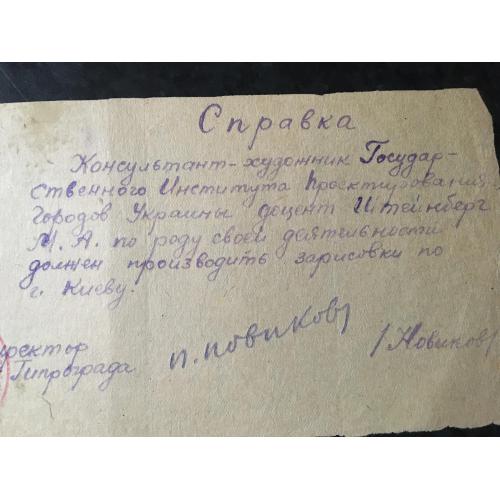 Справка
Консультант-художник Государ-
ственного Института Проектирования
Городов Украины доцент Штейнберг
М. А. по роду своей деятельности
должен производить зарисовки по
г. Киеву.
иректор
Гипрограда п. новиков /Новиков/